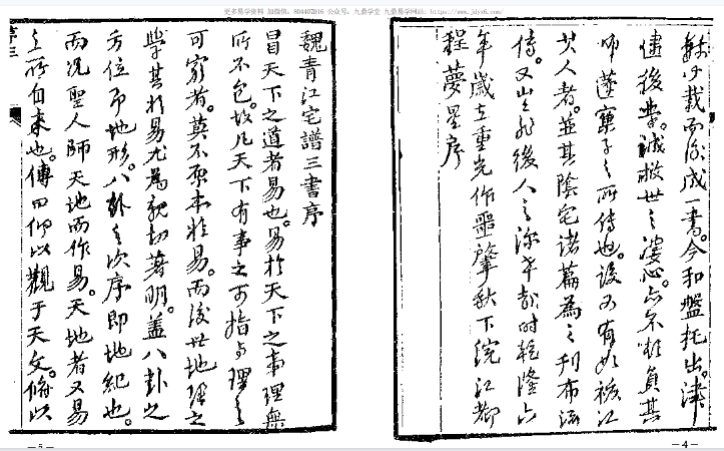 更多易学资料 加微信：804402016 公众号：九曼学堂 九曼易学网站：https://www.jdyx6.com/
餘年裁而後成一書。今和盤托出。津
儘後學。誠救世之婆心。
所傳也。設或有如
其人者。並其陰宅諸篇為之刊布流
傳。又後人之深幸哉。時乾隆六
年歲在重光作噩肇秋下浣江都
程夢星序
魏青江宅譜三書序
冒天下之道者易也。易於天下之事理無
所不包。故凡天下有事之可指與理之
可窮者。莫不原本於易。而後世地理之
學其於易尤為親切著明。蓋八卦之
方位即地形。八卦之次序即地紀也。
而況聖人師天地而作易。天地者又易
之所自來也。傳曰仰以觀于天文。俯以
序三
—5—
—4—